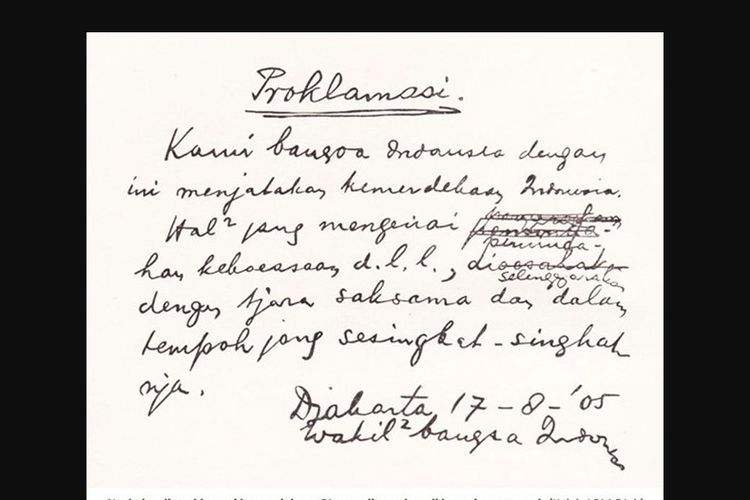 Proklamasi.
Kami bangsa Indonesia dengan
ini menjatakan kemerdekaan Indonesia.
Hal² jang mengenai
peminda-
han kekoeasaan d.l.l., diselenggarakan
dengan tjara saksama dan dalam
tempoh jang sesingkat-singkat
nja.
Djakarta 17 - 8 - '05
Wakil² bangsa Indonesia